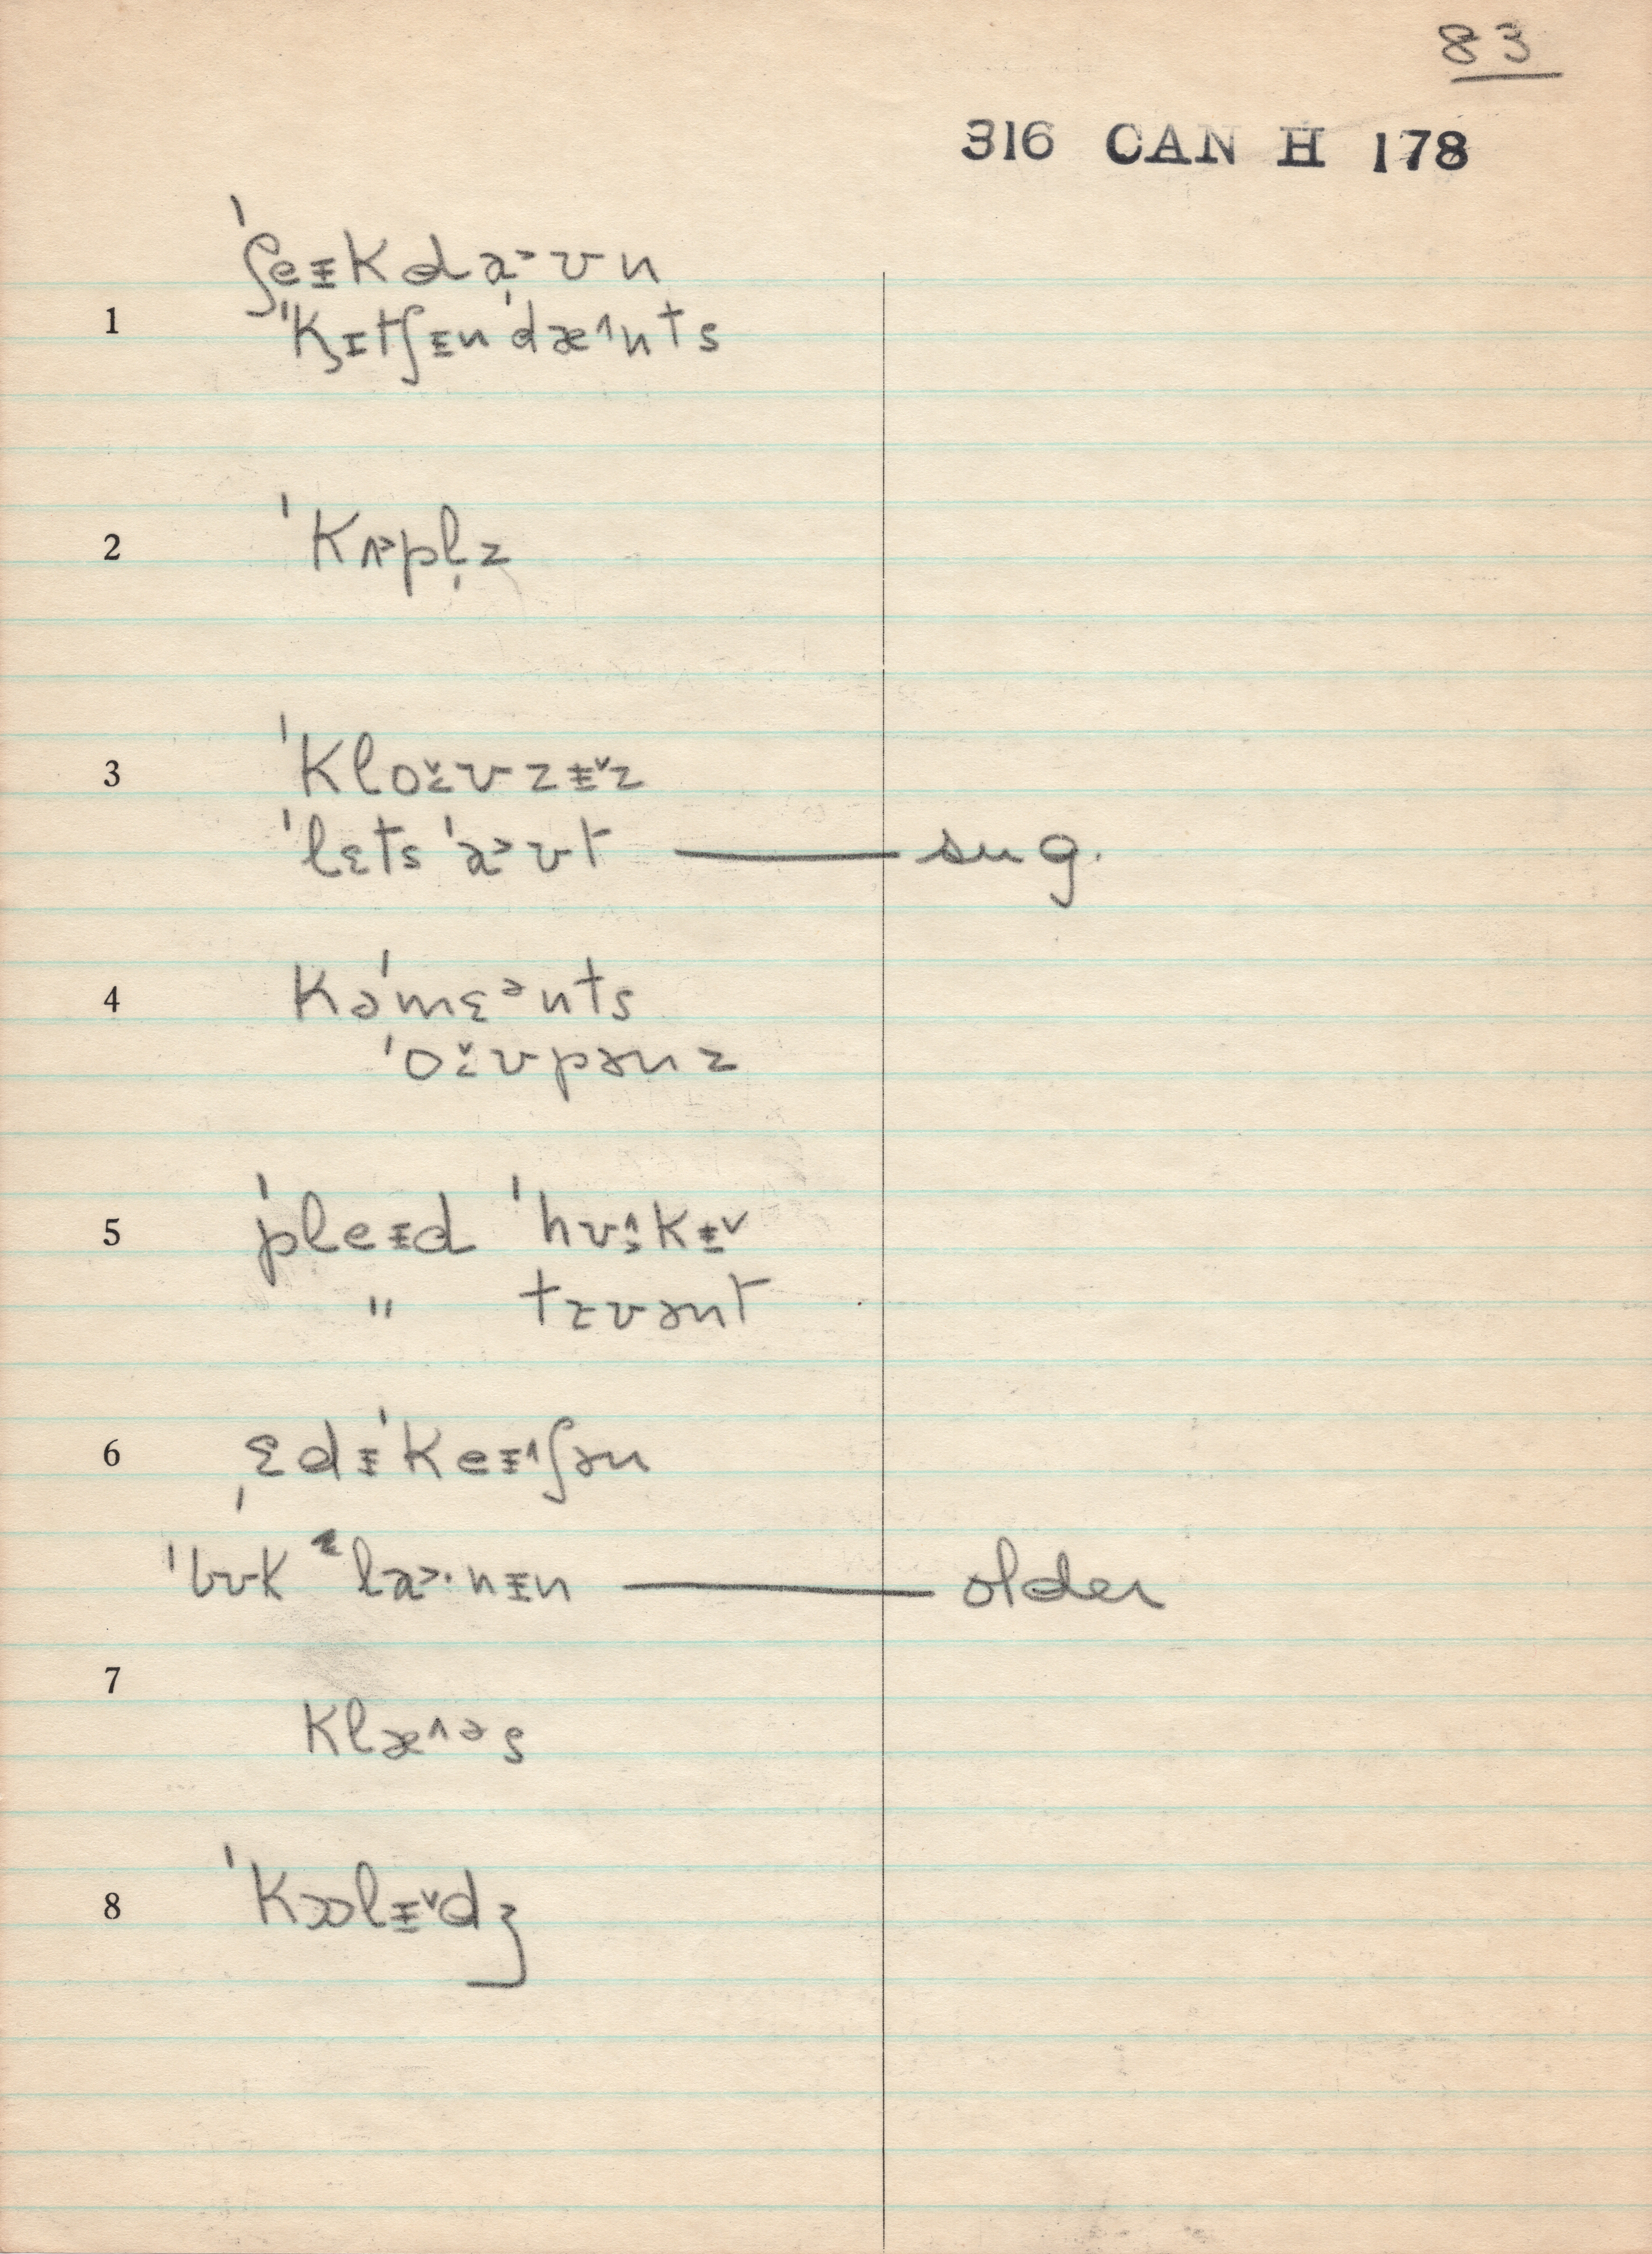 83
316 CAN H 178
ˈʃeɪkdaˬ˃ʊn
1 ˈˈkɪtʃɪnˈdæ˄nts
2 ˈkʌ˃pl̩z
3 ˈkloʊzɪ˅z
ˈlɛts ˈa˃ʊt — sug.
4 kəˈmɛᵊnts
ˈoʊpənz
5 ˈpleɪd ˈhʊ˄kɪ˅
" trʊənt
6 ˌɛdɪˈkeɪ˄ʃən
ˈbʊk ˈla˃·nɪn — older
7 klæ˄ᵊs
8 ˈkɒlɪ˅dʒ